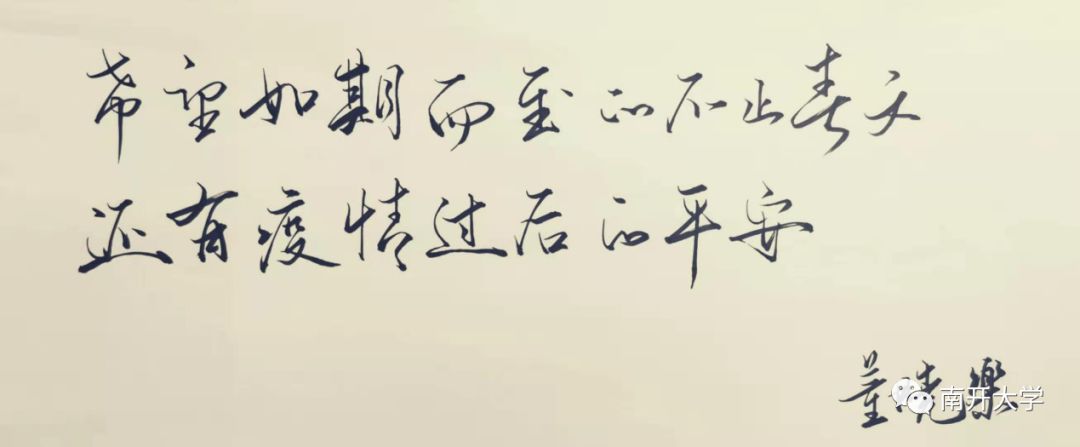 希望如期而至的不止春天
还有疫情过后的平安
董晓樂
南开大学